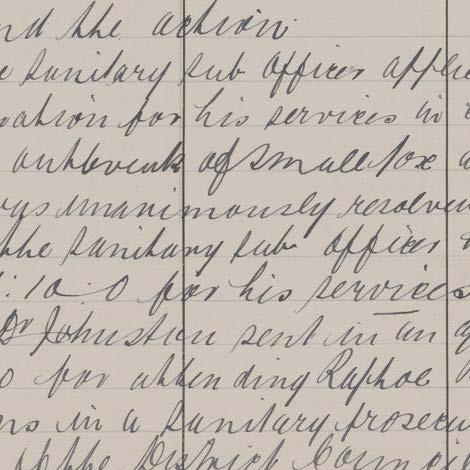 nd the action
e sanitary sub officer applie
vation for his services in
outbreak of small pox a
was unanimously resolved
the sanitary sub officer
: 10 : 0 for his services
Dr Johnston sent in an a
0 for attending Raphoe
ers in a sanitary prosecu
of the District Counci